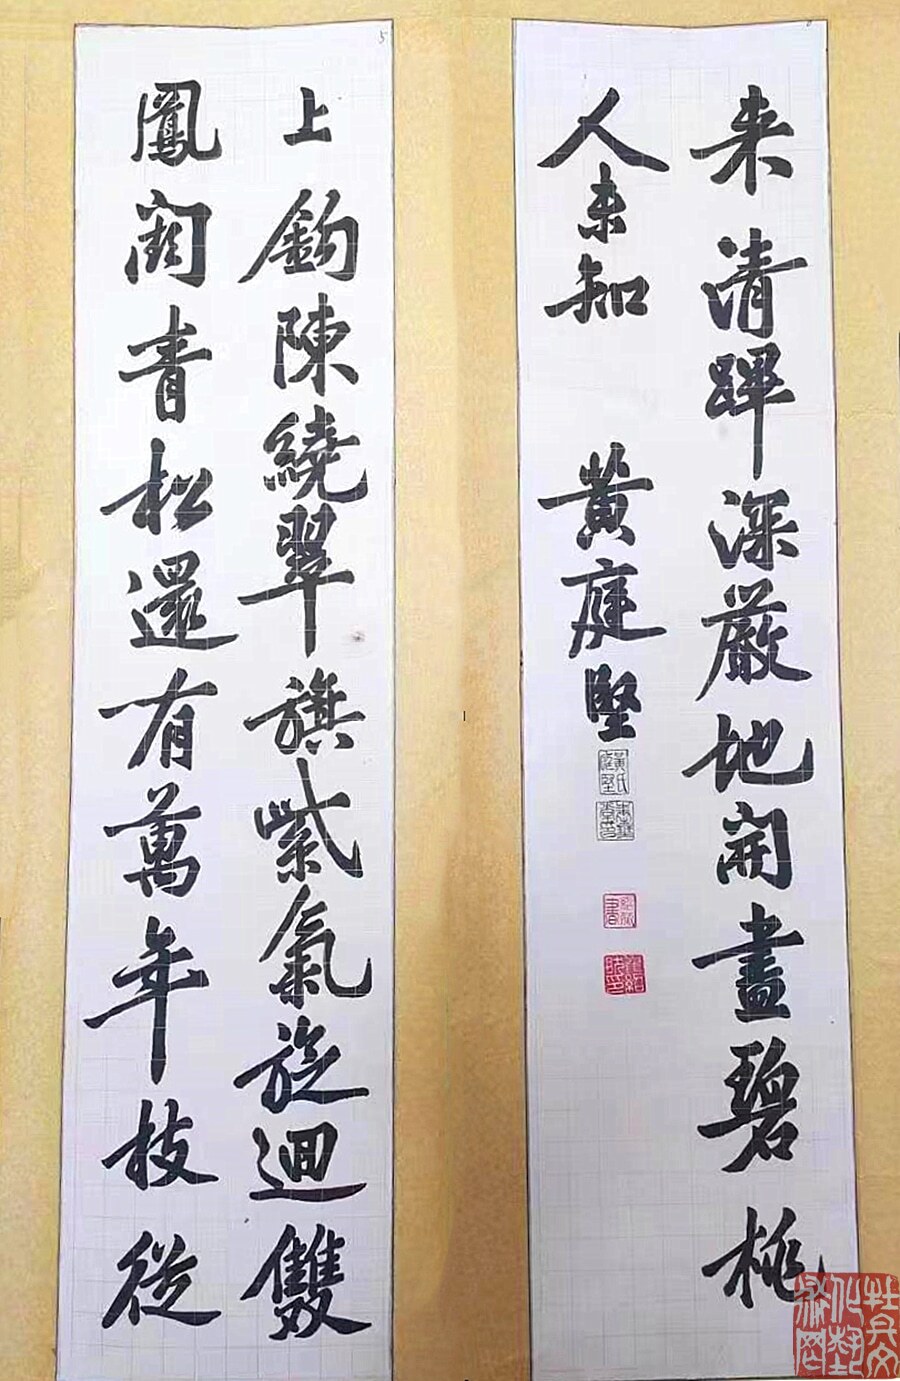 5
上鈎陳繞翠旗紫氣旋迴雙
鳳闕青松還有萬年枝從
来清蹕深嚴地開盡碧桃
人未知
黄庭堅
黃氏庭堅